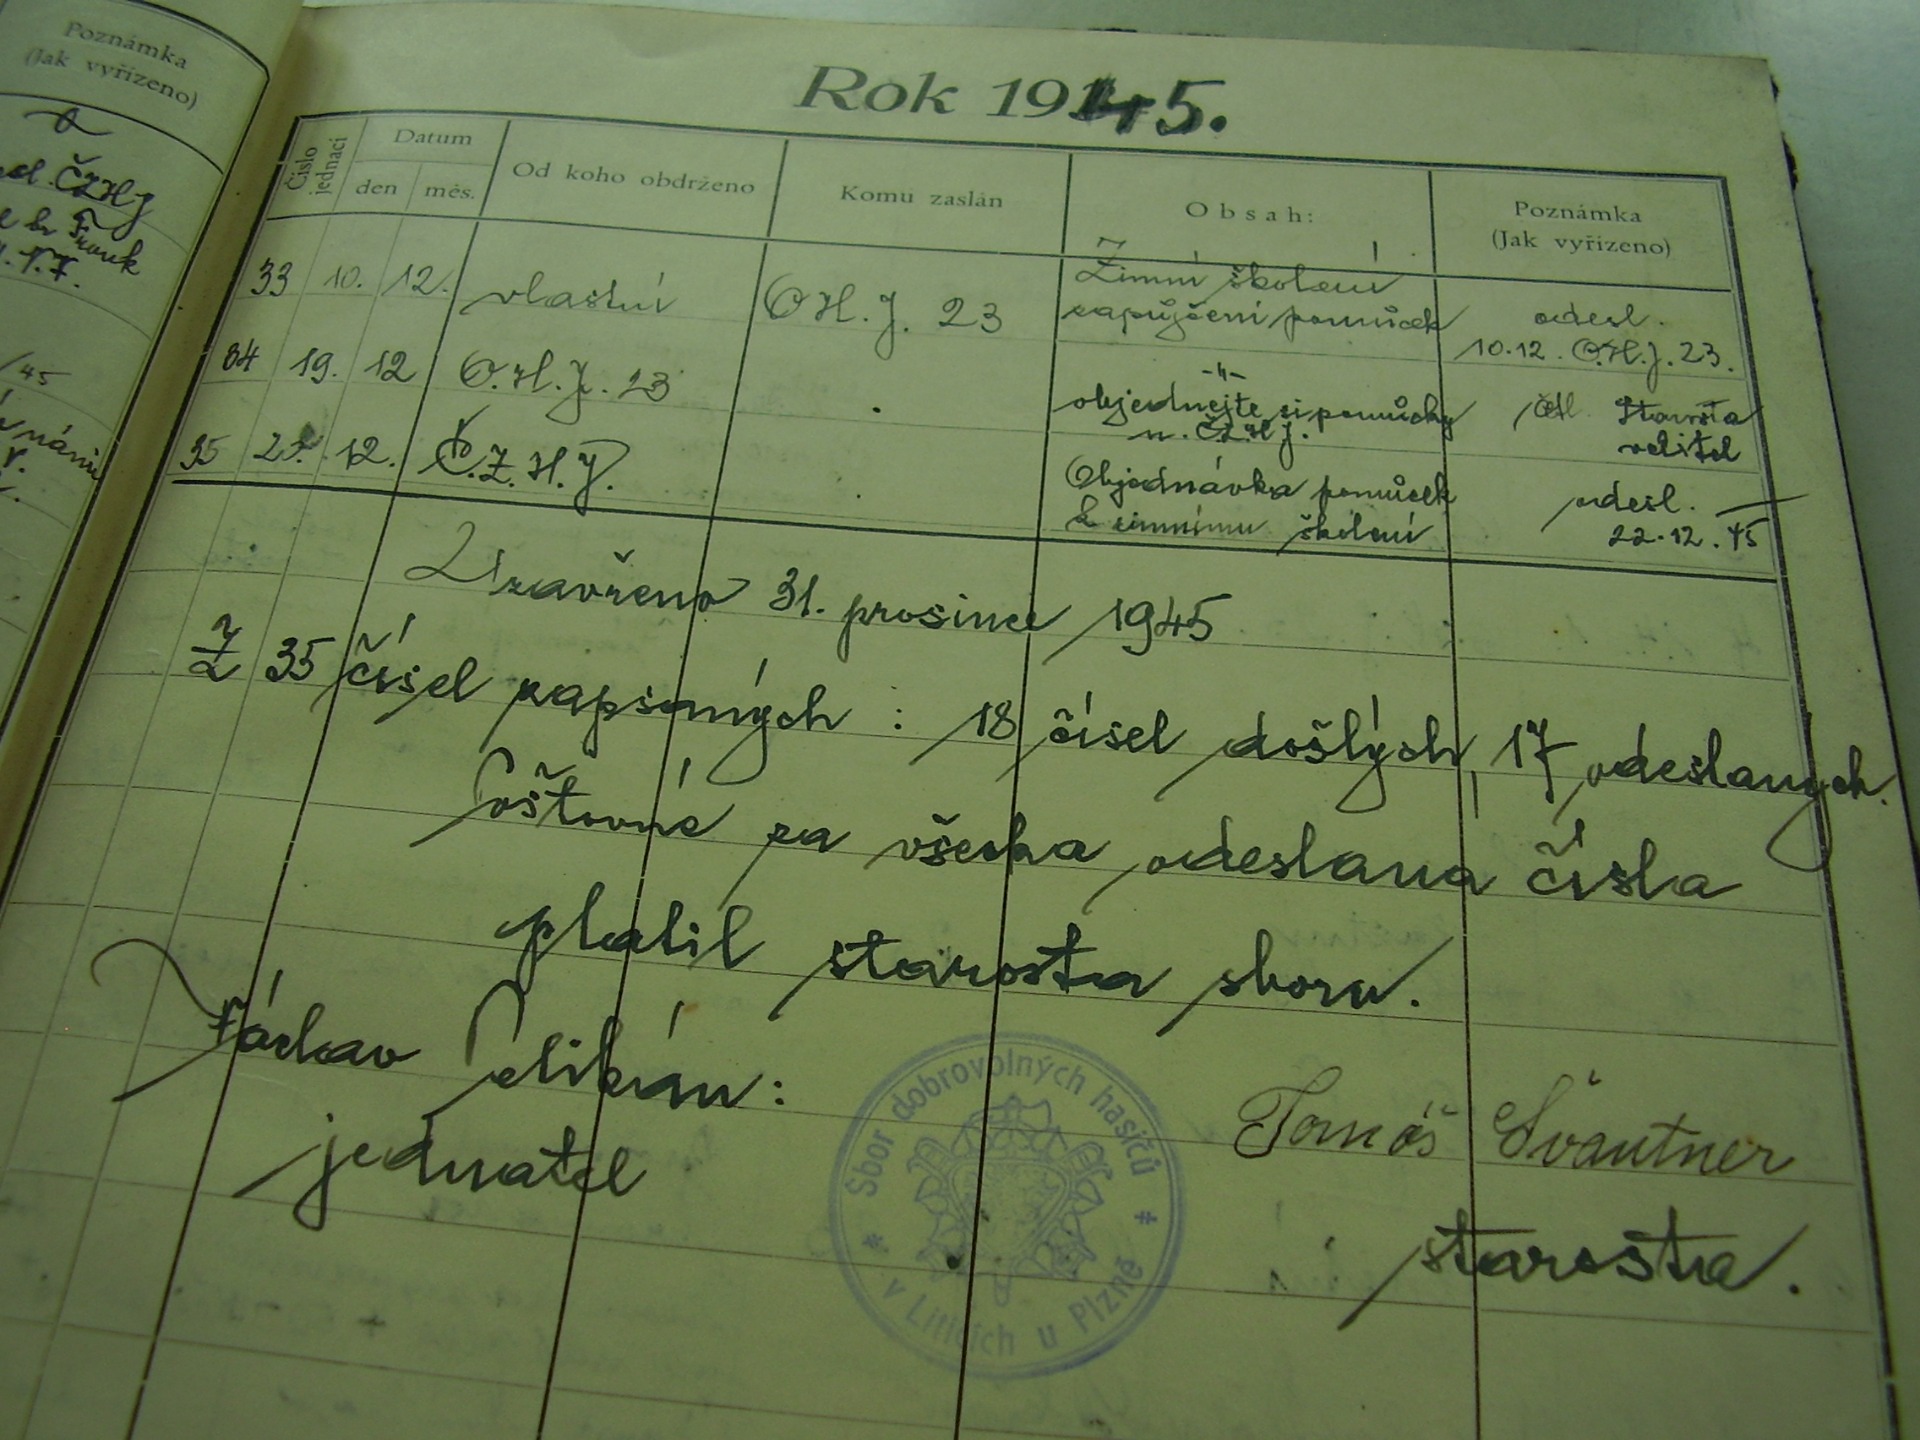 Poznámka
(Jak vyřízeno)
ČZHJ
/45
Rok 1945.
Číslo jednací
Datum
den
měs.
Od koho obdrženo
Komu zaslán
Obsah:
Poznámka
(Jak vyřízeno)
33 10. 12. vlastní O.H.J. 23 Zimní školení
zapůjčení pomůcek odesl.
10.12. O.H.J. 23.
34 19. 12 O.H.J. 23 . -"-
objednejte si pomůcky Starosta
u. ČZHJ. velitel
35 12. Č.Z.H.J. . Objednávka pomůcek odesl.
k zimnímu školení 22.12.45
Uzavřeno 31. prosince 1945
Z 35 čísel zapsaných : 18 čísel došlých, 17 odeslaných.
Poštovné za všecka odeslaná čísla
platil starosta sboru.
Václav Pelikán:
jednatel
Sbor dobrovolných hasičů
* v Liticích u Plzně *
Tomáš Švantner
starosta.